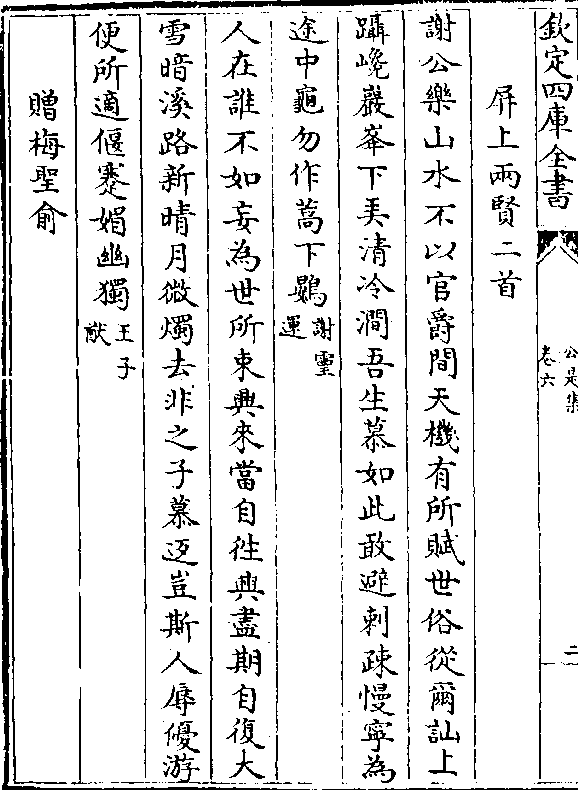 欽定四庫全書
公是集
卷六
二
屏上兩賢二首
謝公樂山水不以官爵間天機有所賦世俗從爾訕上
躡巉巖峯下弄清冷澗吾生慕如此敢避刺疎慢寧為
途中龜勿作蒿下鷃謝靈運
人在誰不如妄為世所束興來當自徃興盡期自復大
雪暗溪路新晴月微燭去非之子慕返豈斯人辱優游
便所適偃蹇媚幽獨王子猷
贈梅聖俞